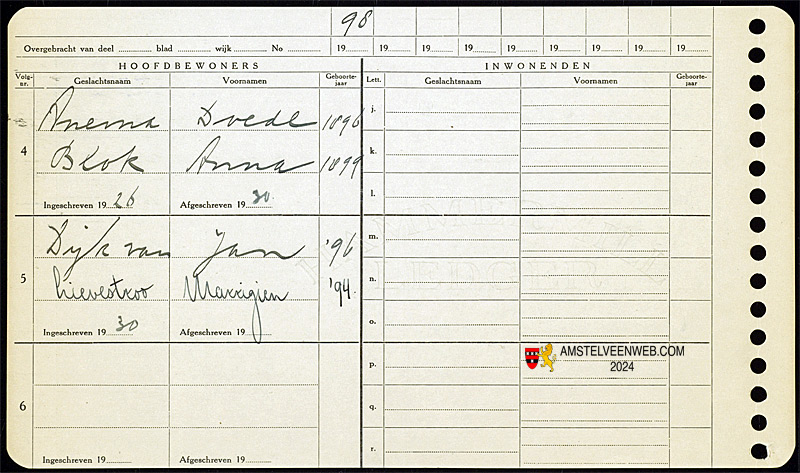 98
Overgebracht van deel blad wijk No 19 19 19 19 19 19 19 19 19
HOOFDBEWONERS INWONENDEN
Volg-nr. Geslachtsnaam Voornamen Geboorte-jaar Lett. Geslachtsnaam Voornamen Geboorte-jaar
Anema Doede 1896 j.
4 Blok Anna 1899 k.
Ingeschreven 19 26 Afgeschreven 19 30 l.
Dijk van Jan '96 m.
5 Lievestroo Marrigien '94. n.
Ingeschreven 19 30 Afgeschreven 19 o.
p.
AMSTELVEENWEB.COM
2024
6 q.
Ingeschreven 19 Afgeschreven 19 r.